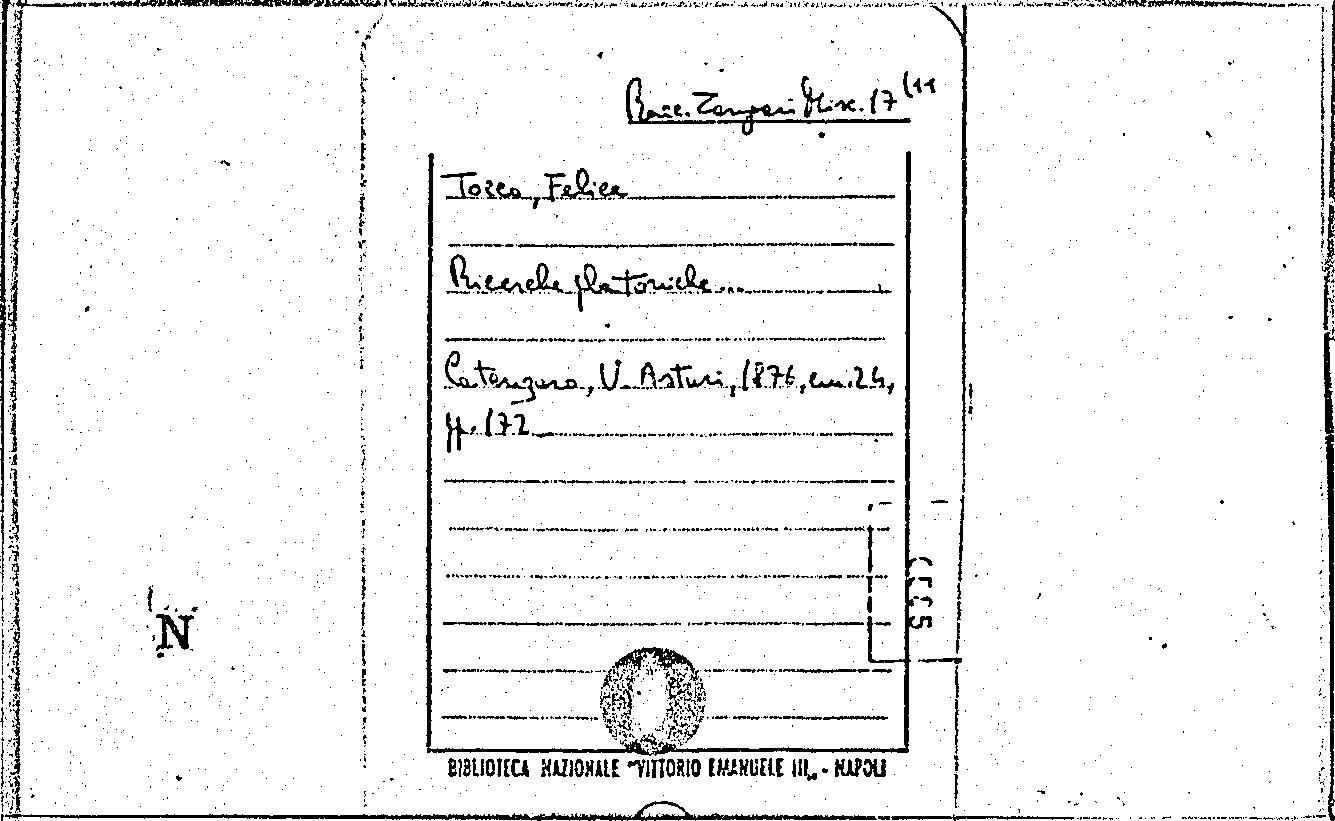 Racc. Zangari Misc. 17 (11
Tocco, Felice
Ricerche platoniche...
Catanzaro, V. Asturi, 1876, cm. 24,
pp. 172
N
BIBLIOTECA NAZIONALE "VITTORIO EMANUELE III„ - NAPOLI